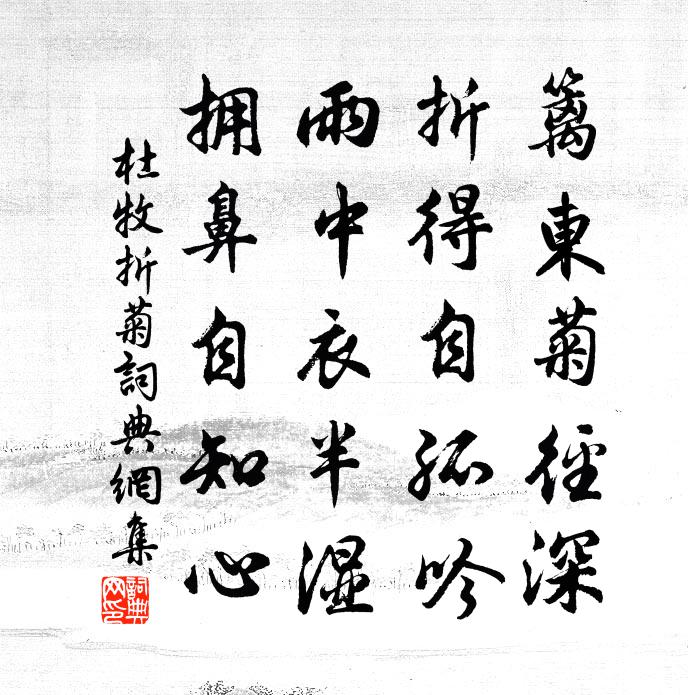 籬東菊徑深
折得自孤吟
雨中衣半濕
擁鼻自知心
杜牧折菊詞典網集
詞典網印